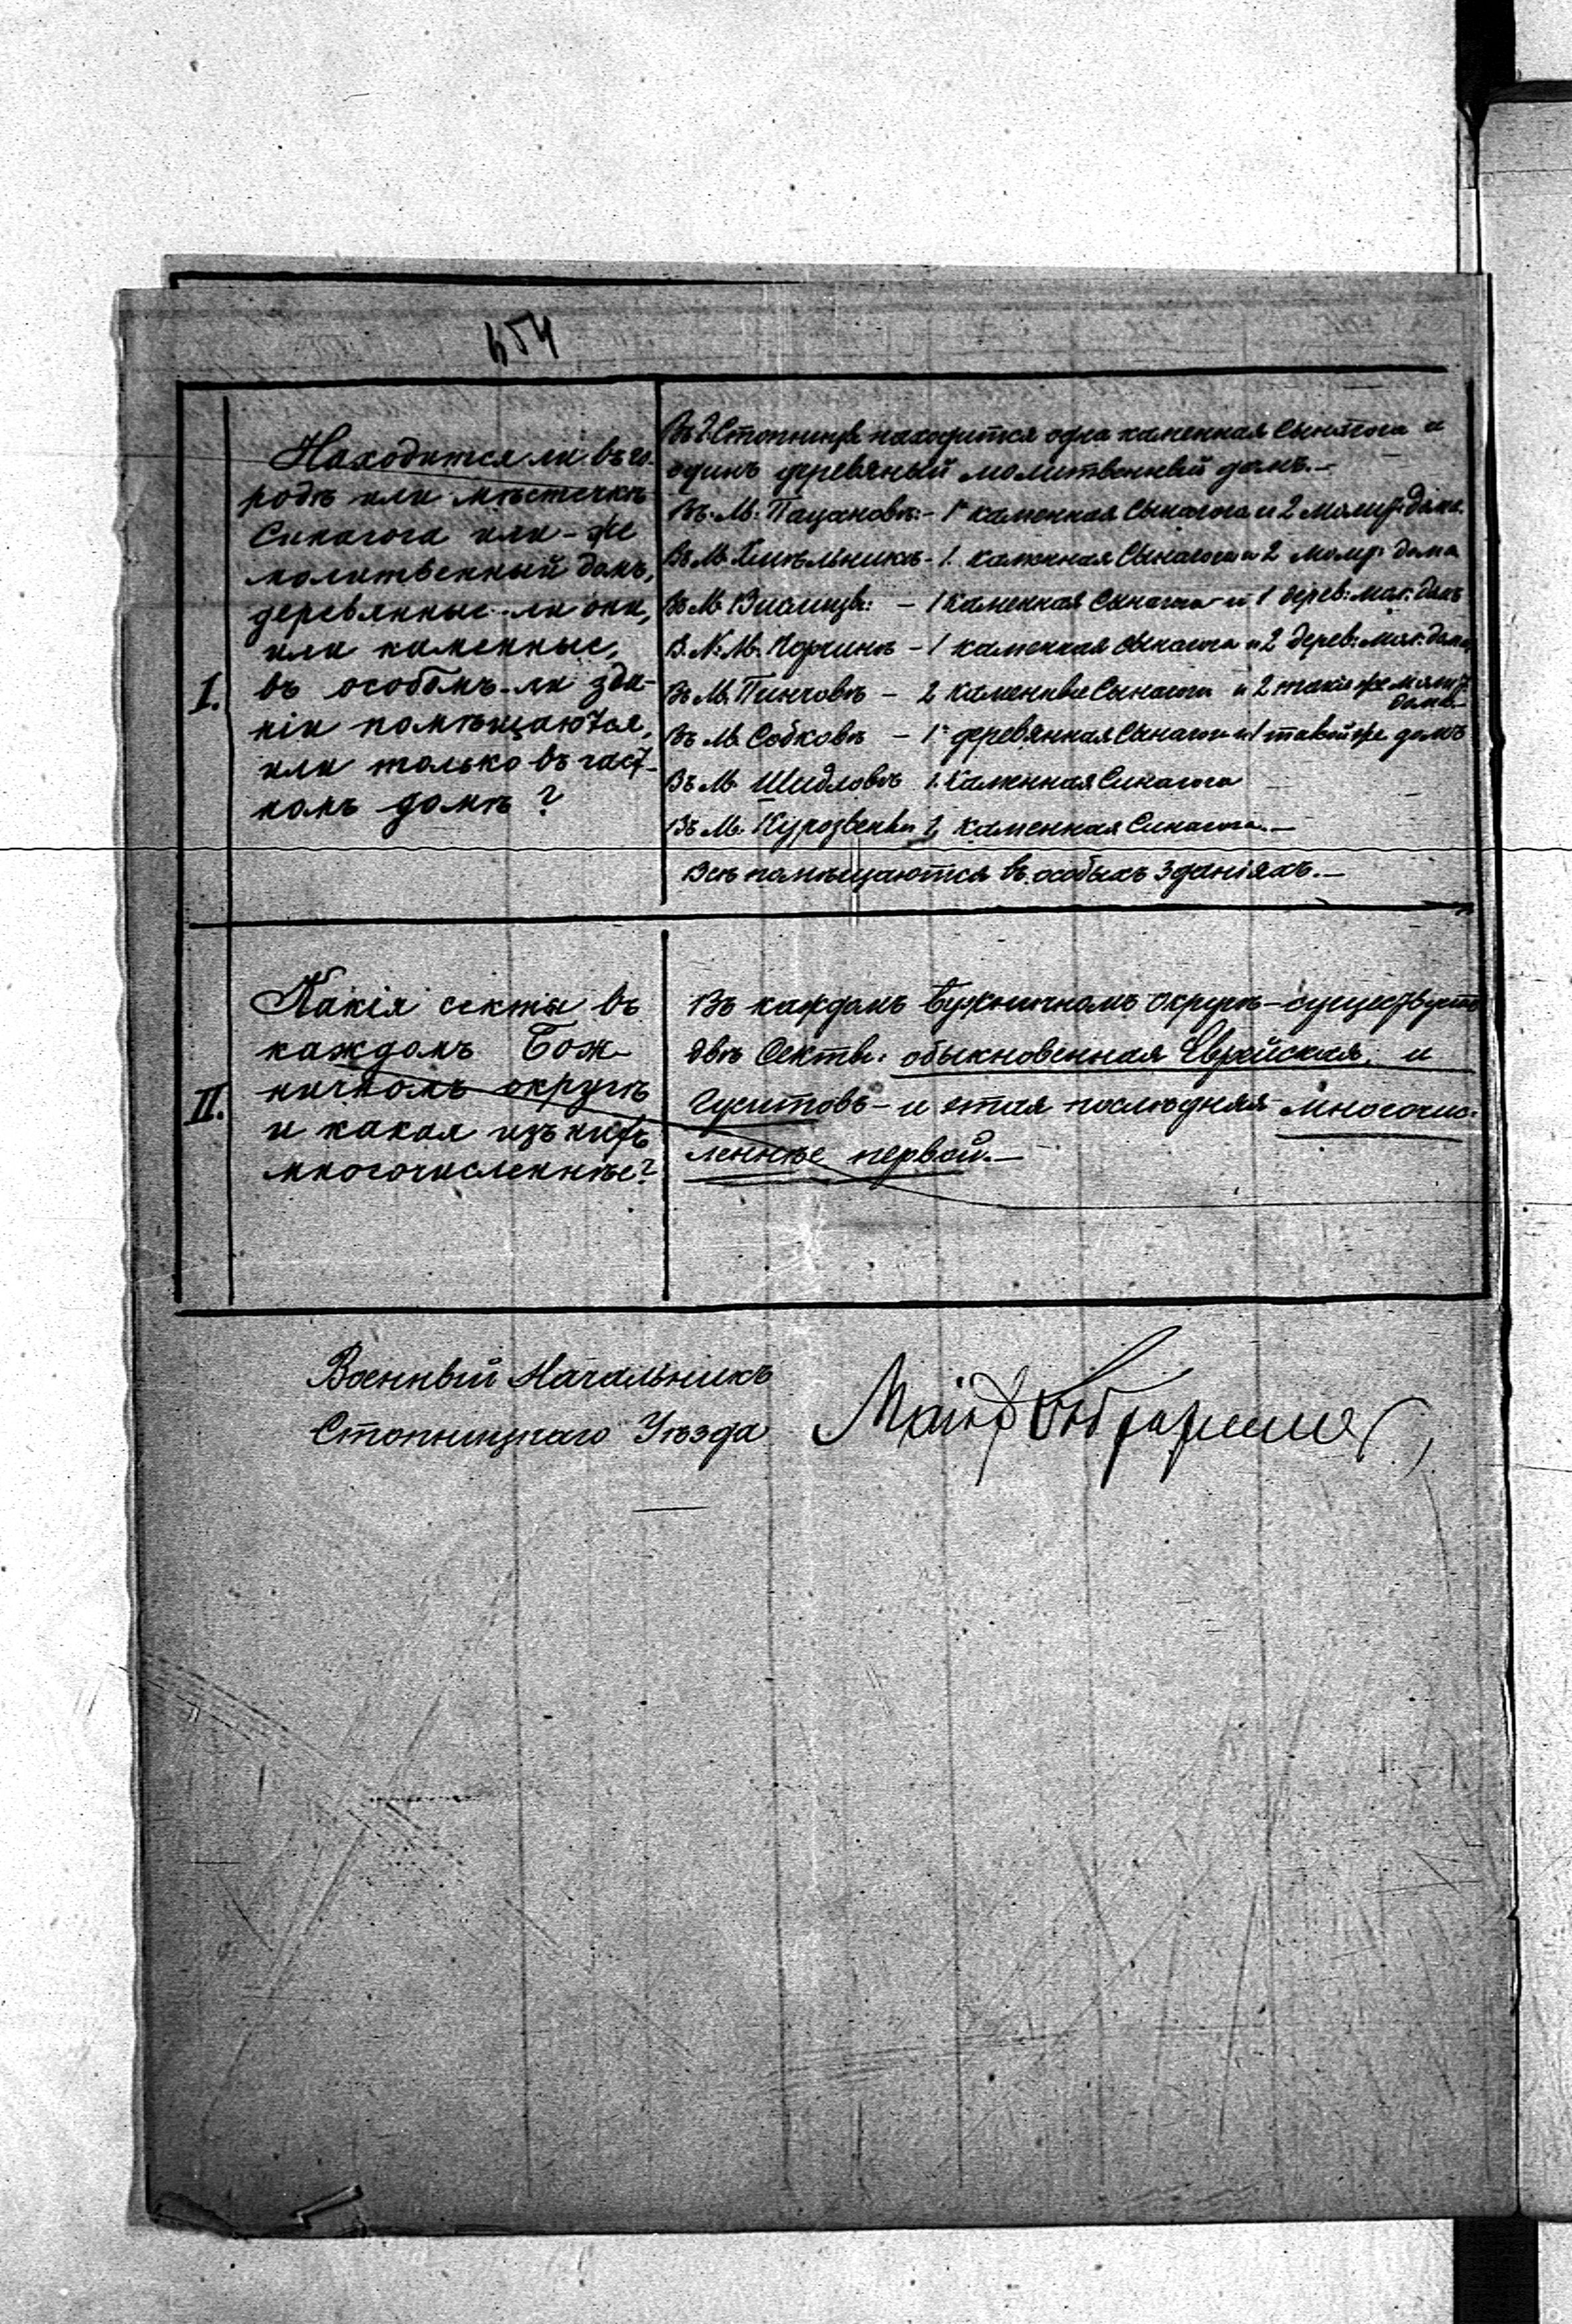 654
Находится ли въ го-
родѣ или мѣстечкѣ
Синагога или-же
молитвенный домъ,
деревянные-ли они,
или каменные,
I.
въ особомъ-ли зда-
ніи помѣщаются,
или только въ част-
номъ домѣ?
Въ г. Стопницѣ находится одна каменная Сынагога и
одинъ деревяный молитвенный домъ.—
Въ. М: Пацановѣ:- 1 каменная Сынагога и 2 молит: дома.
Въ М. Хмѣльникѣ- 1. каменная Сынагога и 2 молит: дома
Въ М. Вислицѣ: — 1 Каменная Сынагога и 1 дерев: мол: домъ
В. Н. М. Корчинѣ — 1 каменная сынагога и 2 дерев: мол: дома
Въ М. Пинчовѣ — 2 каменные Сынагоги и 2 такіе же молит:
дома.—
Въ М. Собковѣ — 1 деревянная Сынагога и 1 такой же домъ
Въ М. Шидловѣ 1. Каменная Синагога
Въ М. Курозвенки 1, каменная Синагога.—
Всѣ помѣщаются въ особыхъ Зданіяхъ.—
Какія секты въ
каждомъ Бож-
ничномъ округѣ
II.
и какая изъ нихъ
многочисленнѣе?
Въ каждомъ Бужничномъ округѣ — существуетъ
двѣ Секты: обыкновенная Еврейская, и
Гуситовъ — и этая послѣдняя многочис-
леннѣе первой.—
Военный Начальникъ
Стопницкаго Уѣзда
Маіоръ